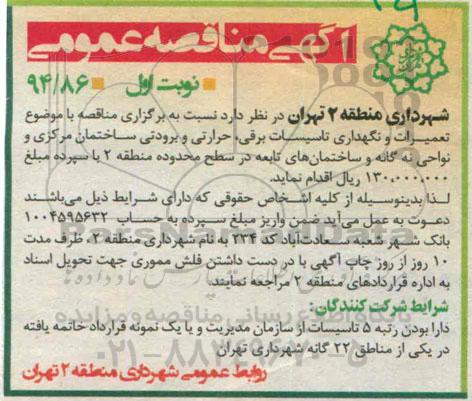 آگهی مناقصه عمومی
نوبت اول ۹۴/۸۶
شهرداری منطقه ۲ تهران در نظر دارد نسبت به برگزاری مناقصه با موضوع
تعمیرات و نگهداری تاسیسات برقی، حرارتی و برودتی ساختمان مرکزی و
نواحی نه گانه و ساختمان‌های تابعه در سطح محدوده منطقه ۲ با سپرده مبلغ
۱۳۰.۰۰۰.۰۰۰ ریال اقدام نماید.
لذا بدینوسیله از کلیه اشخاص حقوقی که دارای شرایط ذیل می‌باشند
دعوت به عمل می‌آید ضمن واریز مبلغ سپرده به حساب ۱۰۰۴۵۹۵۶۳۲
بانک شهر شعبه سعادت‌آباد کد ۲۳۴ به نام شهرداری منطقه ۲، ظرف مدت
۱۰ روز از روز چاپ آگهی با در دست داشتن فلش مموری جهت تحویل اسناد
به اداره قراردادهای منطقه ۲ مراجعه نمایند.
شرایط شرکت کنندگان:
دارا بودن رتبه ۵ تاسیسات از سازمان مدیریت و یا یک نمونه قرارداد خاتمه یافته
در یکی از مناطق ۲۲ گانه شهرداری تهران
روابط عمومی شهرداری منطقه ۲ تهران